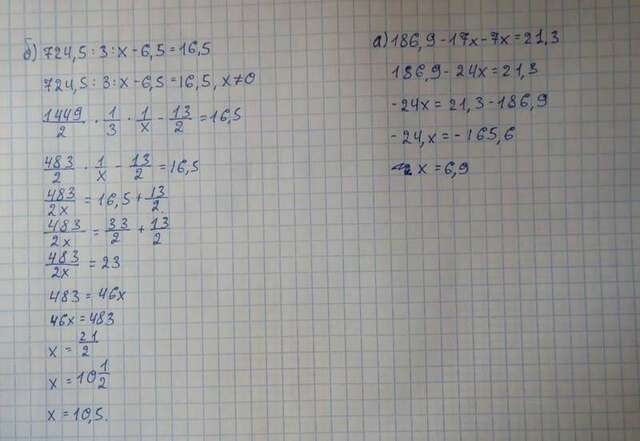 б) 724,5 : 3 : x - 6,5 = 16,5
724,5 : 3 : x - 6,5 = 16,5, x ≠ 0
1449/2 · 1/3 · 1/x - 13/2 = 16,5
483/2 · 1/x - 13/2 = 16,5
483/2x = 16,5 + 13/2
483/2x = 33/2 + 13/2
483/2x = 23
483 = 46x
46x = 483
x = 21/2
x = 10 1/2
x = 10,5.
а) 186,9 - 17x - 7x = 21,3
186,9 - 24x = 21,3
-24x = 21,3 - 186,9
-24,x = -165,6
x = 6,9